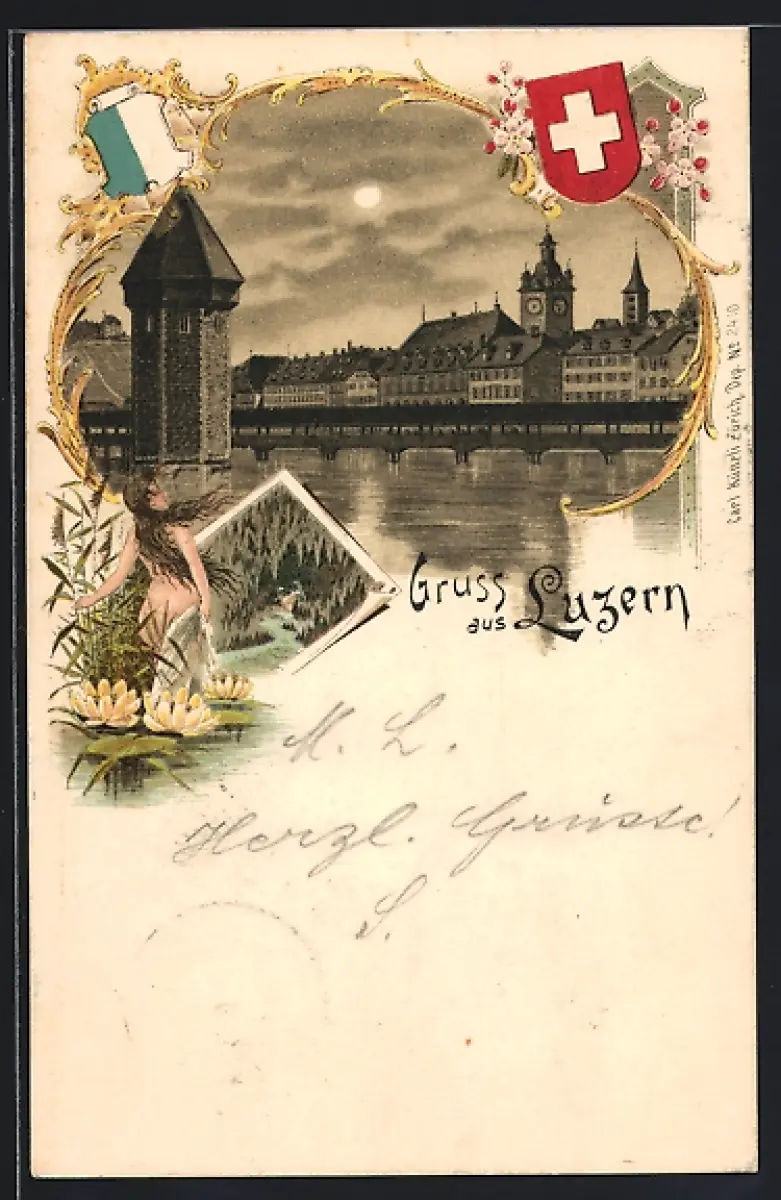 Gruss
aus Luzern
Carl Künzli Zürich, Dep. No 2410
M. L.
Herzl. Grüsse!
S.